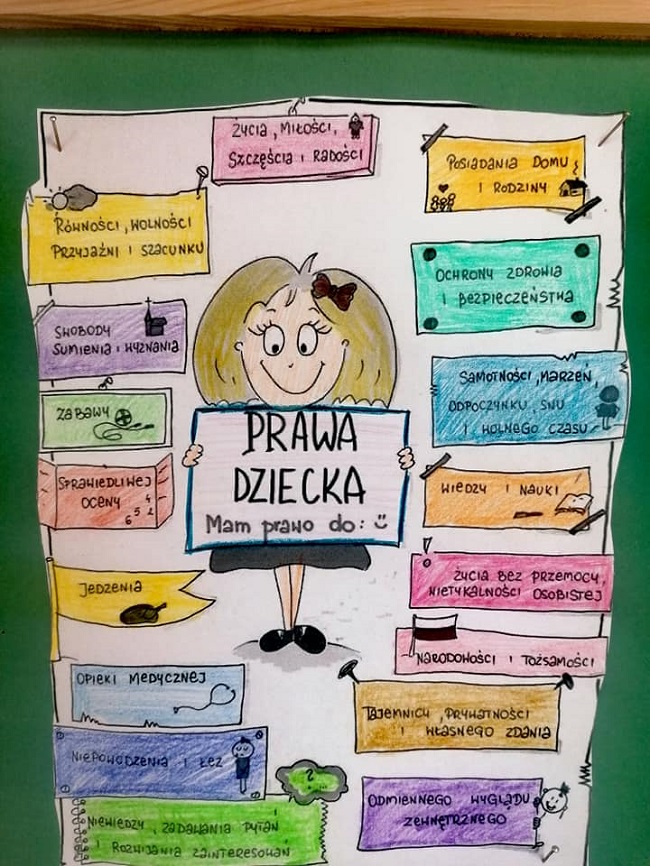 ŻYCIA, MIŁOŚCI,
SZCZĘŚCIA I RADOŚCI
POSIADANIA DOMU
I RODZINY
RÓWNOŚCI, WOLNOŚCI
PRZYJAŹNI I SZACUNKU
OCHRONY ZDROWIA
I BEZPIECZEŃSTWA
SWOBODY
SUMIENIA I WYZNANIA
SAMOTNOŚCI, MARZEŃ,
ODPOCZYNKU, SNU
I WOLNEGO CZASU
ZABAWY
PRAWA
DZIECKA
Mam prawo do:
SPRAWIEDLIWEJ
OCENY
4
6 5 2
WIEDZY I NAUKI
JEDZENIA
ŻYCIA BEZ PRZEMOCY,
NIETYKALNOŚCI OSOBISTEJ
NARODOWOŚCI I TOŻSAMOŚCI
OPIEKI MEDYCZNEJ
TAJEMNICY, PRYWATNOŚCI
I WŁASNEGO ZDANIA
NIEPOWODZENIA I ŁEZ
?
NIEWIEDZY, ZADAWANIA PYTAŃ
I ROZWIJANIA ZAINTERESOWAŃ
ODMIENNEGO WYGLĄDU
ZEWNĘTRZNEGO